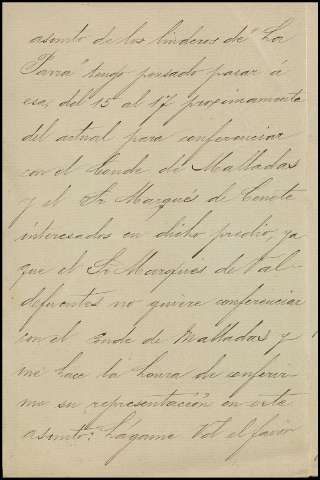 asunto de los linderos de "La
Parra" tengo pensado pasar á
esa, del 15 al 17 proximamente
del actual para conferenciar
con el Conde de Malladas
y el Sr Marqués de
interesados en dicho predio, ya
que el Sr Marqués de Val-
defuentes no quiere conferenciar
con el Conde de Malladas y
me hace la honra de conferir-
me su representación en este
asunto: hágame Vd el favor